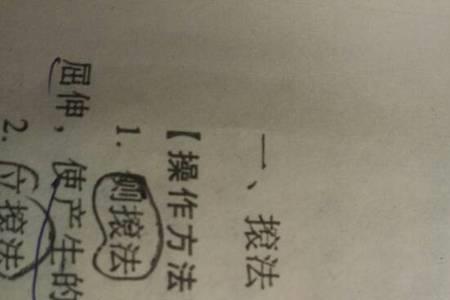 一、㨰法
【操作方法
1. 侧㨰法
屈伸，使产生的
2. 立㨰法